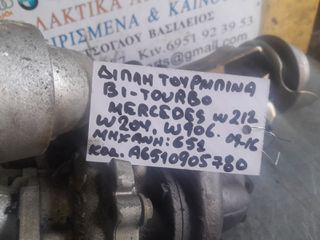 ΛΑΚΤΙΚΑ Α
ΙΡΙΣΜΕΝΑ & ΚΑΙΝΟ
ΣΟΓΛΟΥ ΒΑΣΙΛΕΙΟΣ
Κιν. 6951 92 39 53
ΔΙΠΛΗ ΤΟΥΡΜΠΙΝΑ
BI-TOURBO
MERCEDES W212
W204, W906. 09-16
ΜΗΧΑΝΗ: 651
ΚΩΔ. A6510905780